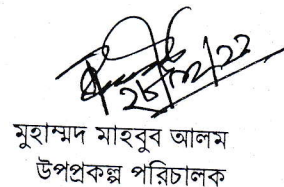 ২৮/১২/২২
মুহাম্মদ মাহবুব আলম
উপপ্রকল্প পরিচালক